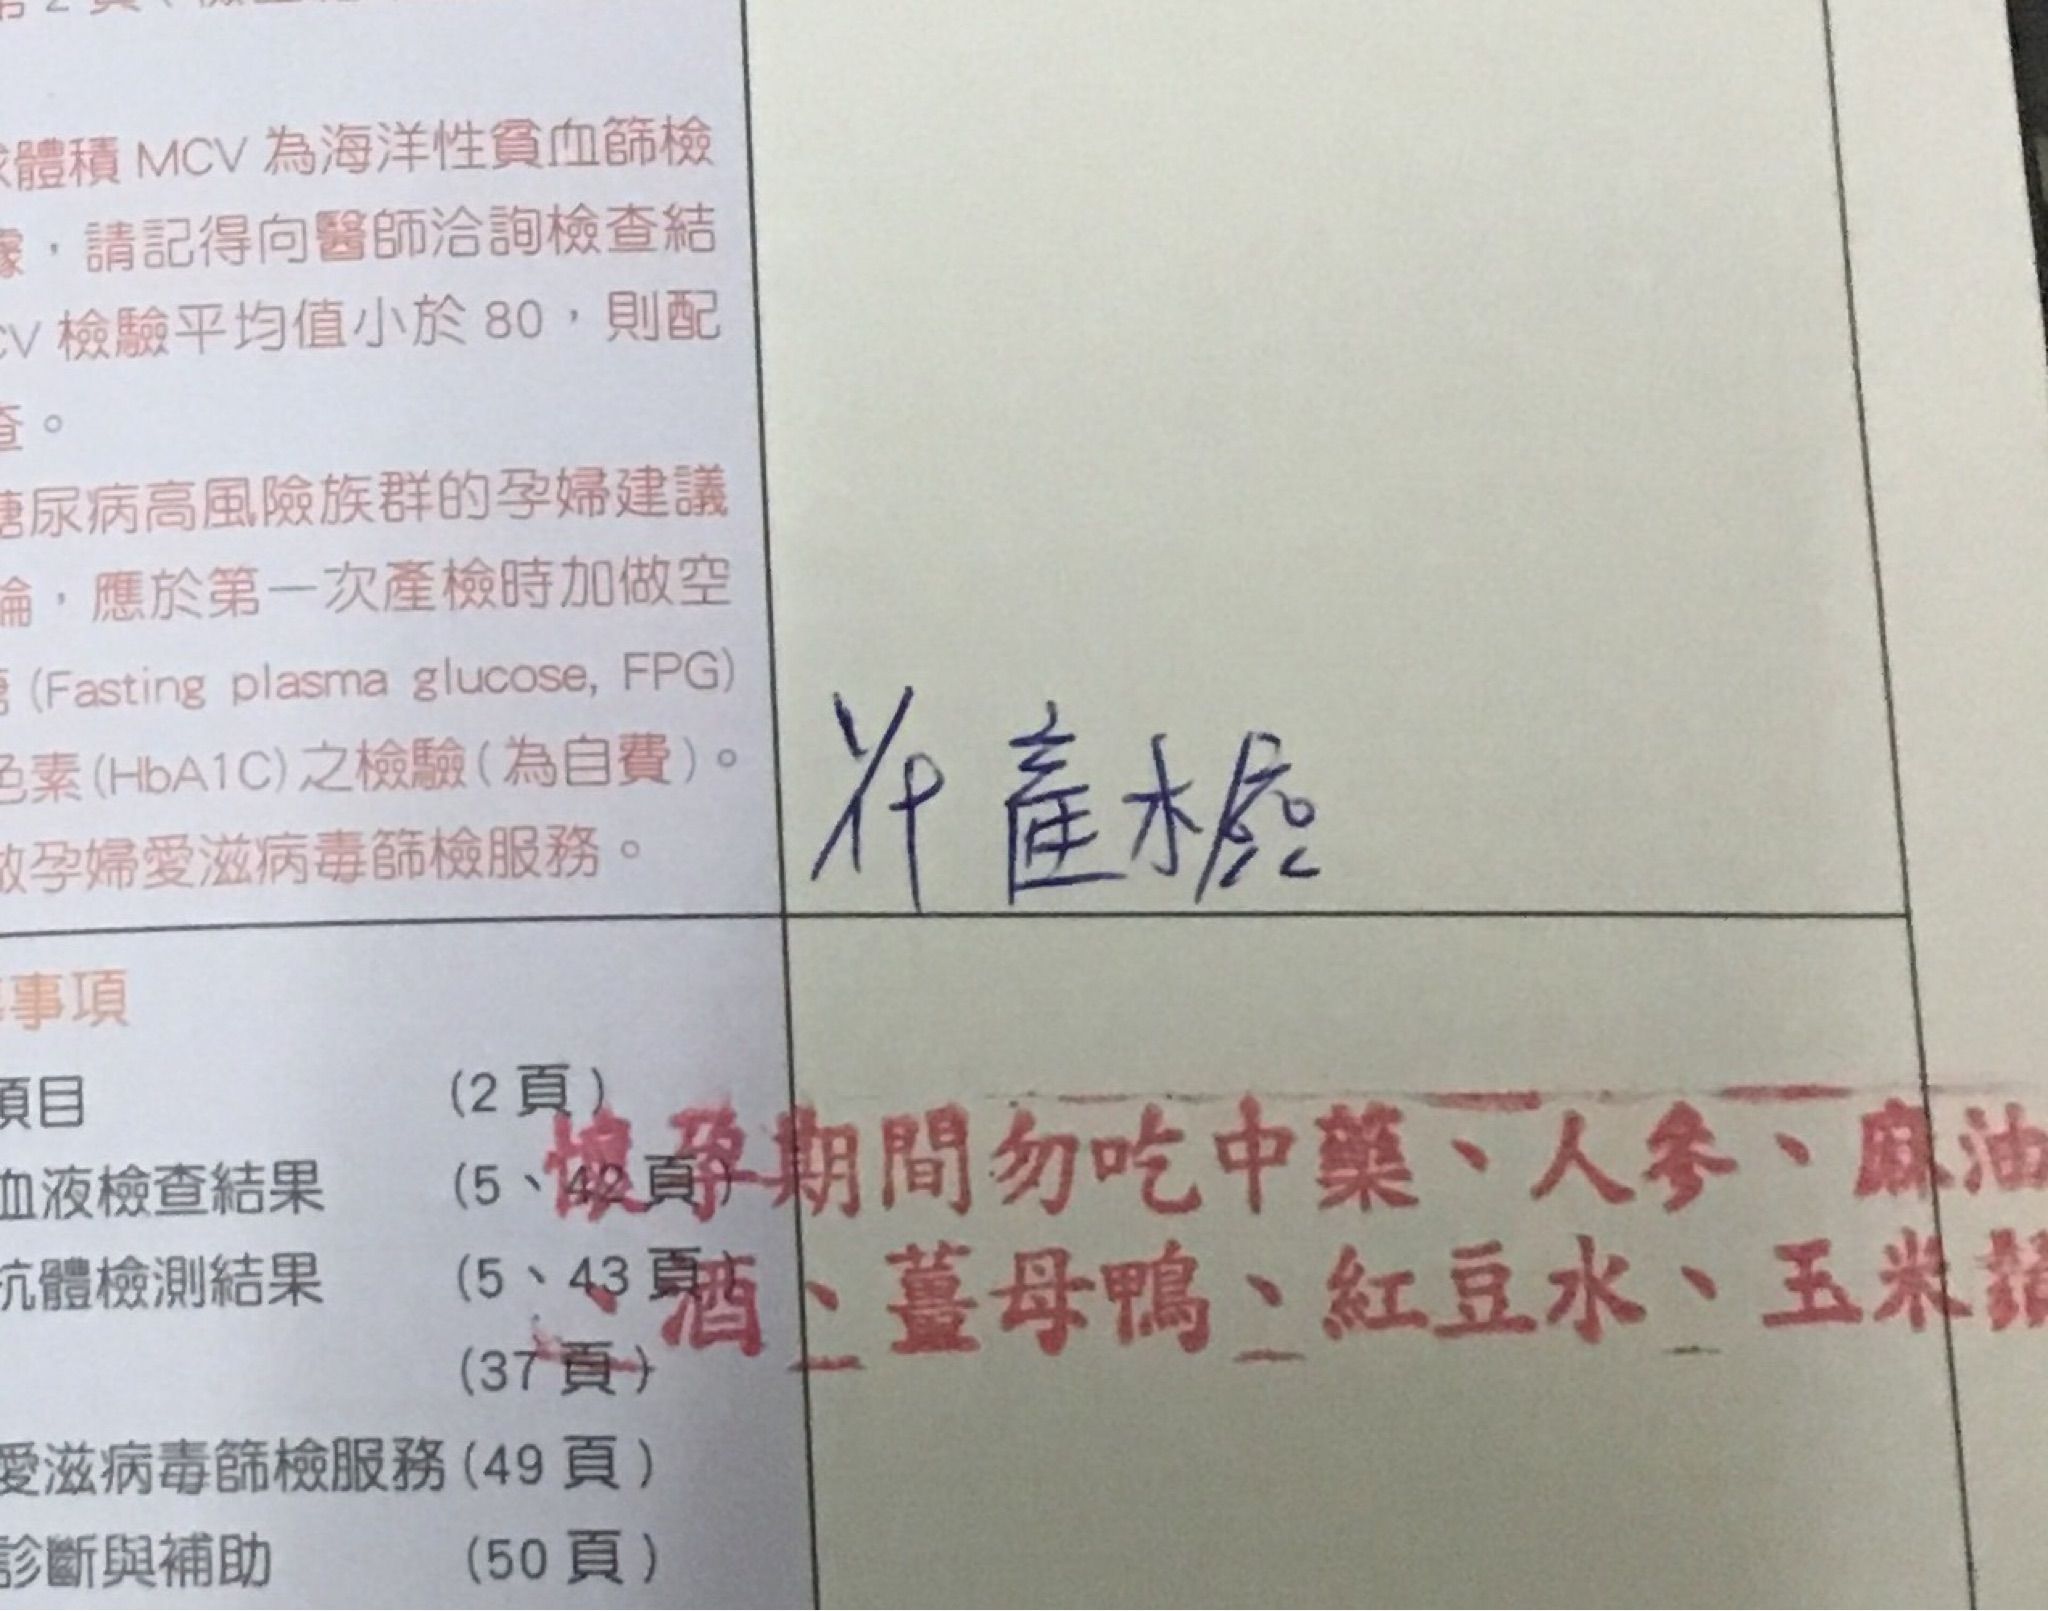 體積 MCV 為海洋性貧血篩檢
據，請記得向醫師洽詢檢查結
CV 檢驗平均值小於 80，則配
查。
糖尿病高風險族群的孕婦建議
論，應於第一次產檢時加做空
糖 (Fasting plasma glucose, FPG)
色素(HbA1C)之檢驗(為自費)。
做孕婦愛滋病毒篩檢服務。
產檢
事項
項目 (2 頁)
血液檢查結果 (5、42 頁)
抗體檢測結果 (5、43 頁)
(37 頁)
愛滋病毒篩檢服務 (49 頁)
診斷與補助 (50 頁)
懷孕期間勿吃中藥、人參、麻油
、酒、薑母鴨、紅豆水、玉米鬚